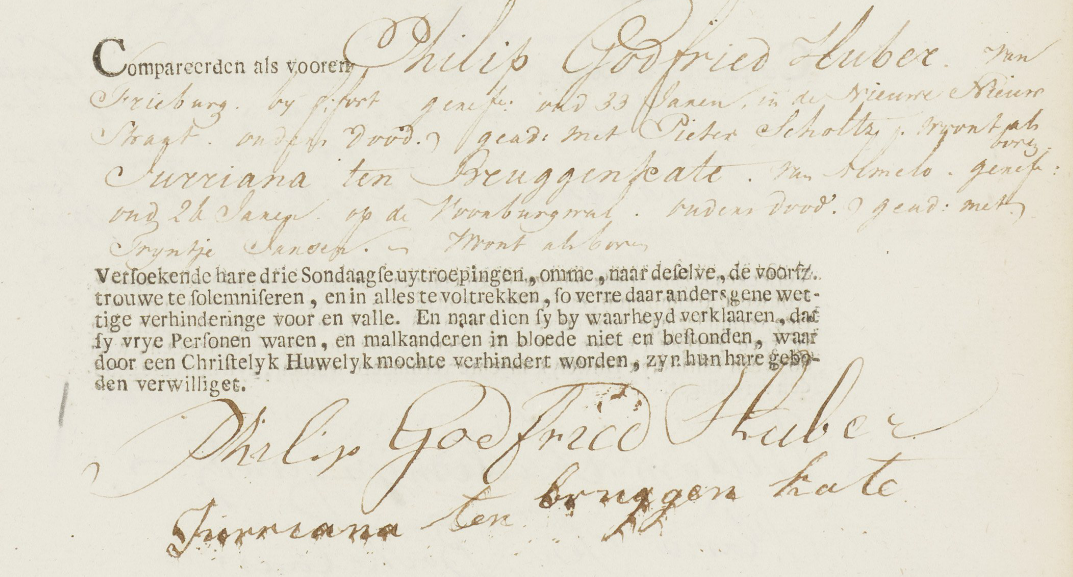 Compareerden als vooren Philip Godfried Huber. van
Frieburg. by geref: oud 33 Jaren, in de Nieuwe Nieuw
Straat. ouders dood. geads: met Pieter Scholtz. Woont als
boven
Jurriana ten Bruggenkate. van Almelo. geref:
oud 26 Jaren. op de Voorburgwal. ouders dood. geads: met
Tryntje Jansen. Woont als boven
Versoekende hare drie Sondaagse uytroepingen, omme, naar deselve, de voorsz.
trouwe te solemniseren, en in alles te voltrekken, so verre daar anders gene wet-
tige verhinderinge voor en valle. En naar dien sy by waarheyd verklaaren, dat
sy vrye Personen waren, en malkanderen in bloede niet en bestonden, waar
door een Christelyk Huwelyk mochte verhindert worden, zyn hun hare gebo-
den verwilliget.
Philip Godfried Huber
Jurriana ten bruggen kate